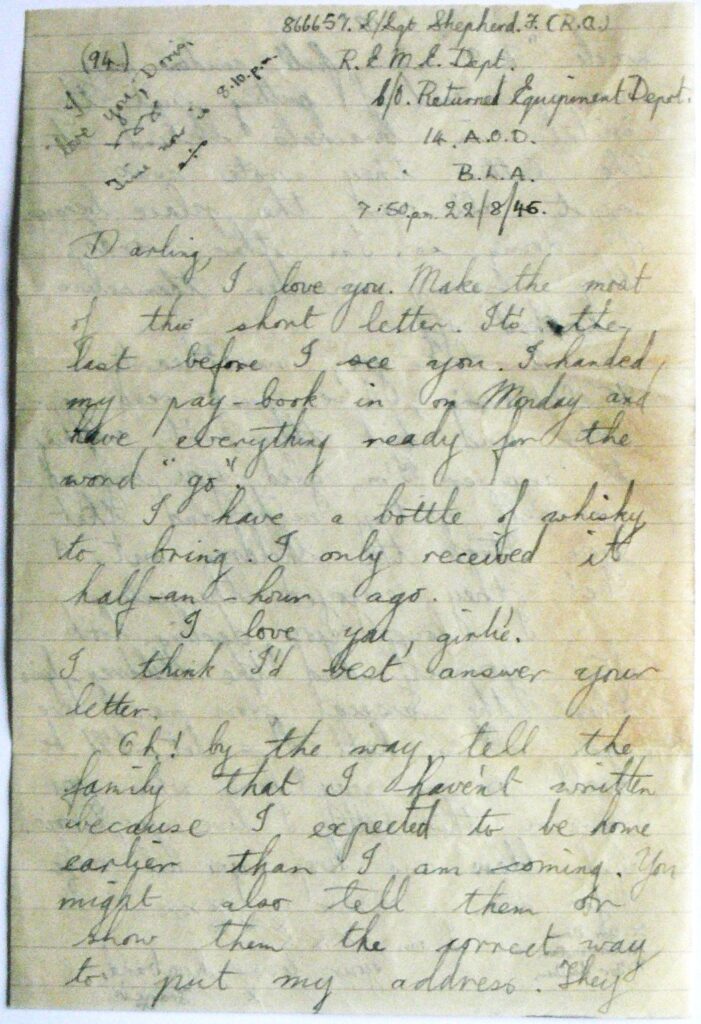 866657. S/Sgt Shepherd. F. (R.A.)
R.E.M.E. Dept.
C/O. Returned Equipment Depot.
14. A.O.D.
B.L.A.
7:50.p.m. 22/8/45.
(94.)
I
love you, Doris,
Time now is 8.10.p.m.
Darling,
I love you. Make the most
of this short letter. It's the
last before I see you. I handed
my pay-book in on Monday and
have everything ready for the
word "go".
I have a bottle of whisky
to bring. I only received it
half-an-hour ago.
I love you, girlie.
I think I'd best answer your
letter.
Oh! by the way, tell the
family that I haven't written
because I expected to be home
earlier than I am coming. You
might also tell them or
show them the correct way
to put my address. They